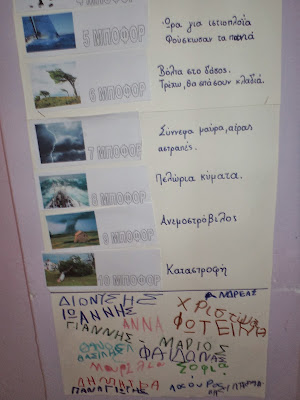 5 ΜΠΟΦΟΡ
Ώρα για ιστιοπλοΐα
Φούσκωσαν τα πανιά
6 ΜΠΟΦΟΡ
Βόλτα στο δάσος.
Τρέχω, θα σπάσουν κλαδιά.
7 ΜΠΟΦΟΡ
Σύννεφα μαύρα, αέρας
αστραπές.
8 ΜΠΟΦΟΡ
Πελώρια κύματα.
9 ΜΠΟΦΟΡ
Ανεμοστρόβιλος
10 ΜΠΟΦΟΡ
Καταστροφή
ΔΙΟΝΥΣΗΣ
ΑΝΔΡΕΑΣ
ΙΩΑΝΝΗΣ
ΧΡΙΣΤΙΝΑ
ΓΙΑΝΝΗΣ ΑΝΝΑ ΦΩΤΕΙΝΗ
ΜΑΡΙΟΣ
ΦΑΙΔΩΝΑΣ
ΣΟΦΙΑ
ΔΗΜΗΤΡΑ
ΠΑΝΑΓΙΩΤΗΣ